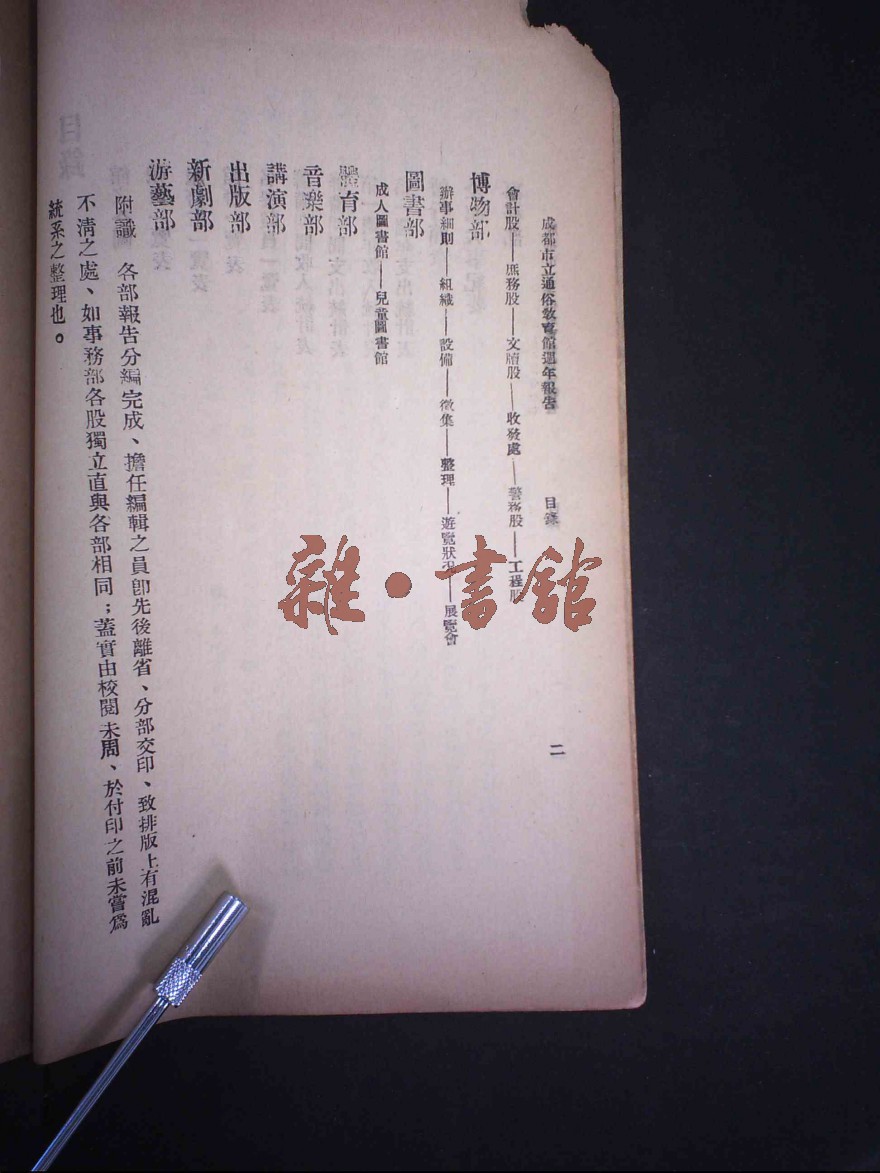 成都市立通俗教育館週年報告 目錄 二
會計股——庶務股——文牘股——收發處——警務股——工程股
博物部
辦事細則——組織——設備——徵集——整理——遊覽狀況——展覽會
圖書部
成人圖書館——兒童圖書館
體育部
音樂部
講演部
出版部
新劇部
游藝部
附識 各部報告分編完成、擔任編輯之員卽先後離省、分部交印、致排版上有混亂
不清之處、如事務部各股獨立直與各部相同；蓋實由校閱未周、於付印之前未嘗爲
統系之整理也。
雜·書館